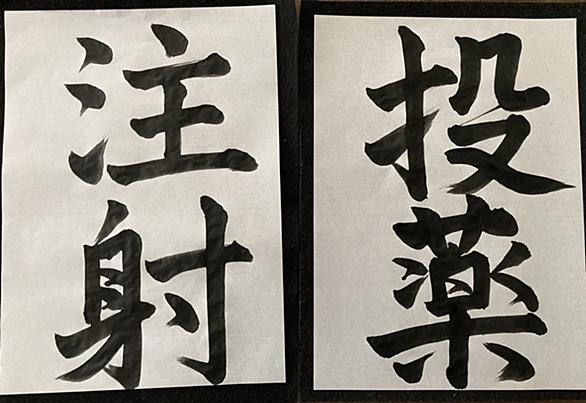 投薬
注射